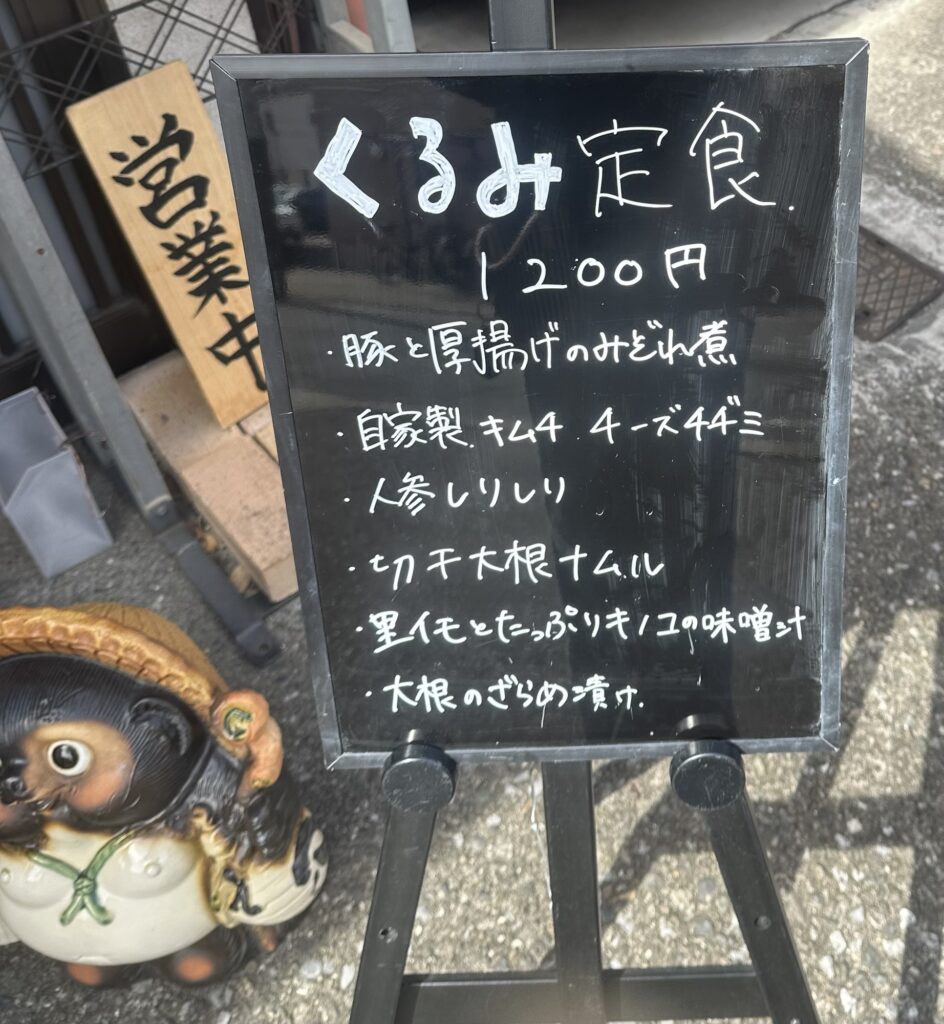 営業中
くるみ定食.
1200円
・豚と厚揚げのみぞれ煮
・自家製キムチ チーズチヂミ
・人参しりしり
・切干大根ナムル
・里イモとたっぷりキノコの味噌汁
・大根のざらめ漬け.